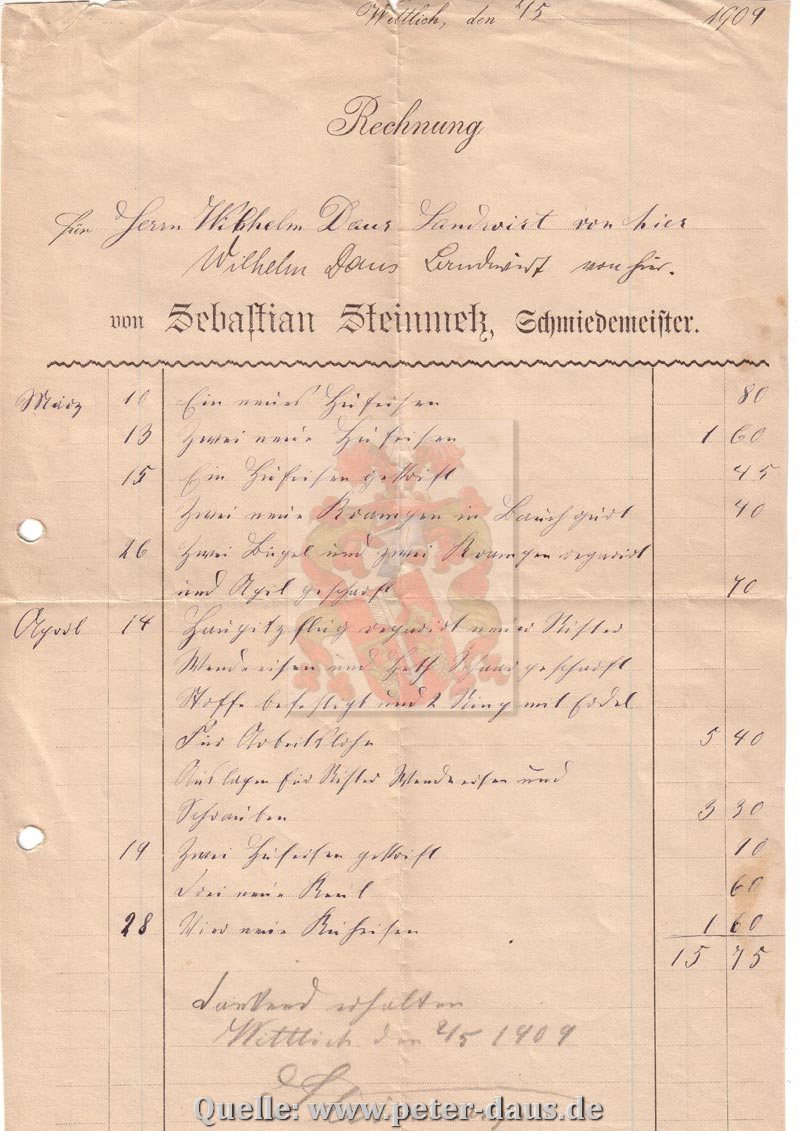 Wittlich, den 2/5 1909
Rechnung
für Herrn Wilhelm Daus Landwirt von hier
Wilhelm Daus Landwirt von hier.
von Sebastian Steinmetz, Schmiedemeister.
März 10 Ein neues Hufeisen 80
13 Zwei neue Hufeisen 1 60
15 Ein Hufeisen 45
Zwei neue Krampen in Bauchgurt 40
26 Zwei Bügel und zwei Krampen reparirt
und geschärft 70
April 14 reparirt neuer Rister
Wendeeisen und geschärft
befestigt und 2 Ring mit
Für Arbeitslohn 5 40
Auslagen für Rister Wendeeisen und
Schrauben 3 30
19 Zwei Hufeisen 10
Drei neue Keul 60
28 Vier neue Kuheisen 1 60
15 75
Dankend erhalten
Wittlich den 2/5 1909
Quelle: www.peter-daus.de